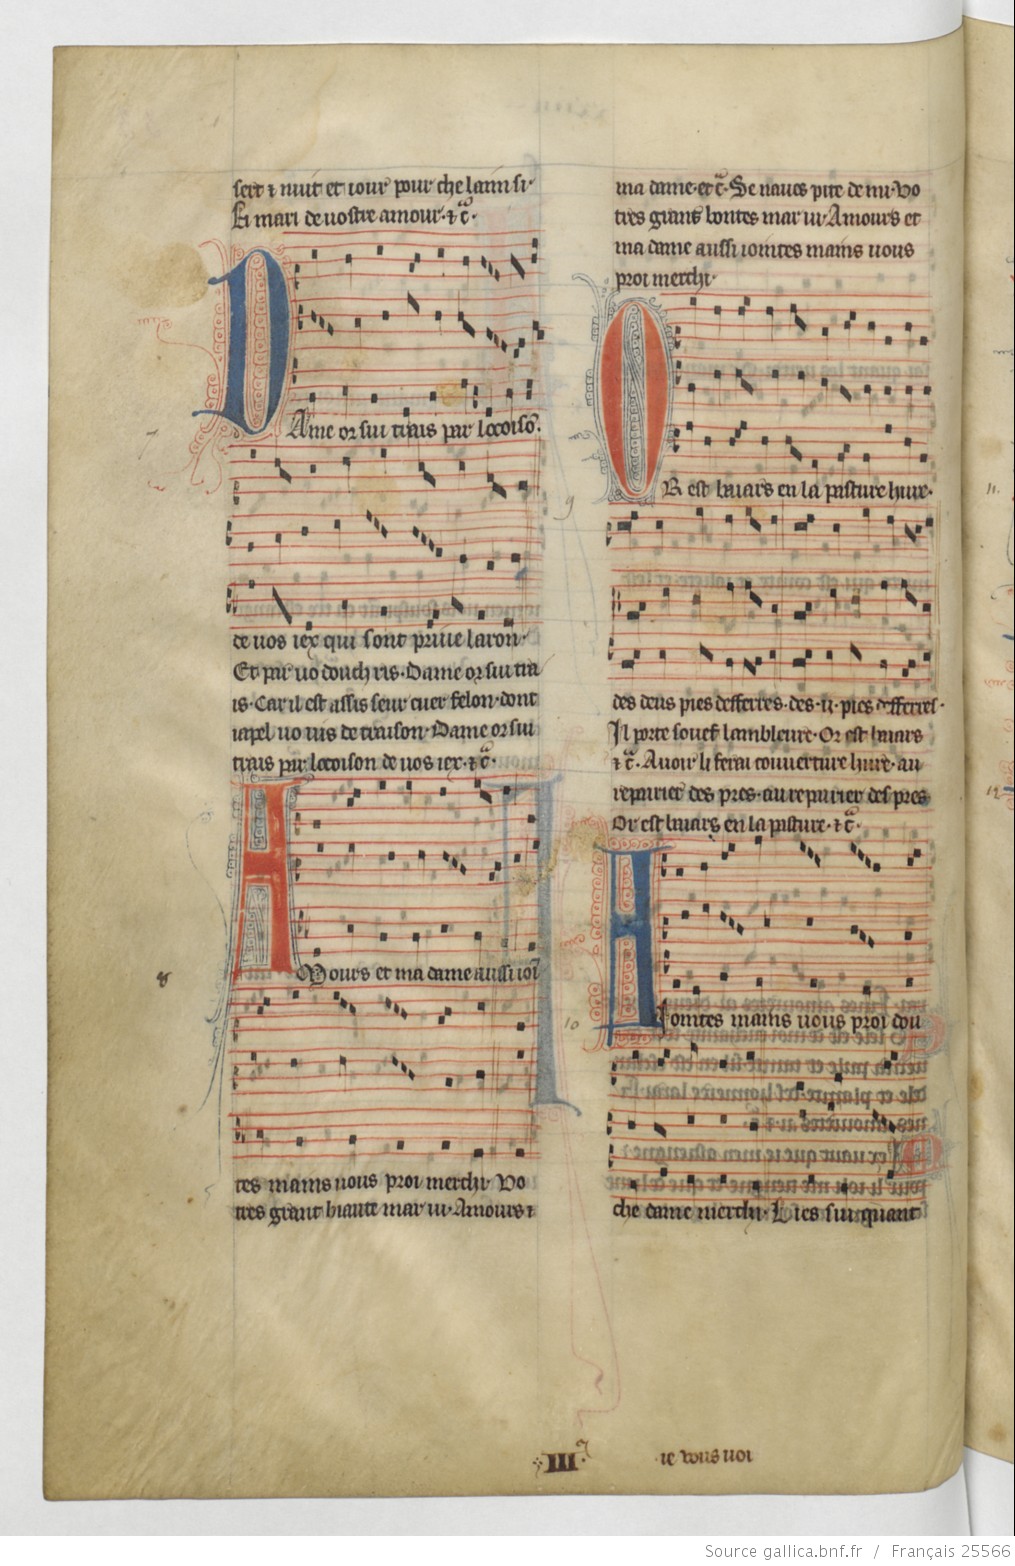 sert ⁊ nuit et iour pour che lami si·
Et mari de uostre amour· ⁊ c̃·
Ame or sui trais par loccoiso·
de uos iex qui sont priue laron·
Et par uo douch ris· Dame or sui tra
is· Car il est assis seur cuer felon· dont
iapel uo uis de traison· Dame or sui
trais par loccoison de uos iex· ⁊ c̃·
8
Mours et ma dame aussi ioı̃
tes mains uous proi merchi· Vo
tres grant biaute mar ui· Amours ⁊
ma dame· et c̃· Se naues pite de mi· Vo
tres grans bontes mar ui· Amours et
ma dame aussi iointes mains uous
proi merchi·
9
R est baiars en la pasture hure·
des deus pies defferres· des· ii· pies defferres·
Il porte souef lambleure· Or est baiars
⁊ c̃· Auoir li ferai couuerture hure· au
repairier des pres· au repairier des pres
Or est baiars en la pasture· ⁊ c̃·
10
Iointes mains uous proi dou
che dame merchi· Lies sui quant
·III·
ie vous uoi
11.
12
Source gallica.bnf.fr / Français 25566